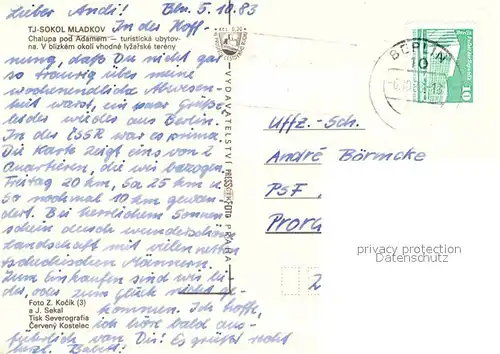 Lieber Andi! Bln. 5.10.83
TJ-SOKOL MLADKOV
Chalupa pod Adamem — turistická ubytov-
na. V blízkém okolí vhodné lyžařské terény
In des Hoff-
nung, daß Du nicht gar
so traurig über meine
wochenendliche Abwesen-
heit warst, ein paar Grüße
des wieder aus Berlin.
In des ČSSR war es prima.
Die Karte zeigt eins von 2
Quartieren, die wir bezogen.
Freitag 20 km, Sa 25 km u.
So nochmal 10 km gewan-
dert. Bei herrlichem Sonnen
schein durch wunderschöne
Landschaft mit vielen netten
tschechischen Männern.
Zum Einkaufen sind wir lei-
des, oder zum Glück nicht ge-
kommen. Ich hoffe,
ich höre bald aus-
führlich von Dir! Es grüßt recht
herzl. Babett!
Foto Z. Kočík (3)
a J. Sekal
Tisk Severografia
Červený Kostelec
VYDAVATELSTVÍ PRESSFOTO PRAHA
BERLIN
10
10
Uffz.-Sch.
André Börmcke
PSF
Pror
privacy protection
Datenschutz